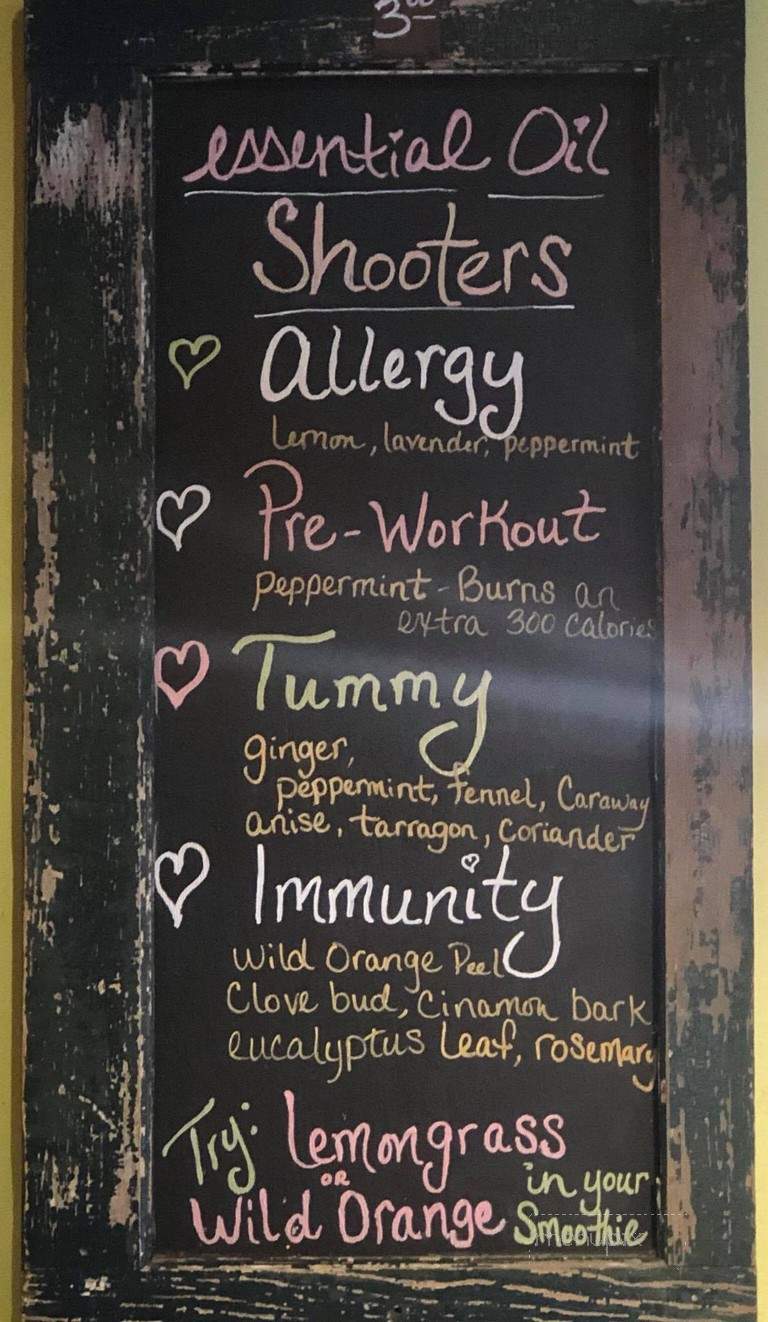 3.00
essential Oil
Shooters
Allergy
Lemon, lavender, peppermint
Pre-Workout
peppermint - Burns an
extra 300 Calories
Tummy
ginger,
peppermint, fennel, Caraway
anise, tarragon, coriander
Immunity
Wild Orange Peel
Clove bud, Cinamon bark
eucalyptus Leaf, rosemary
Try: Lemongrass
or in your
Wild Orange Smoothie